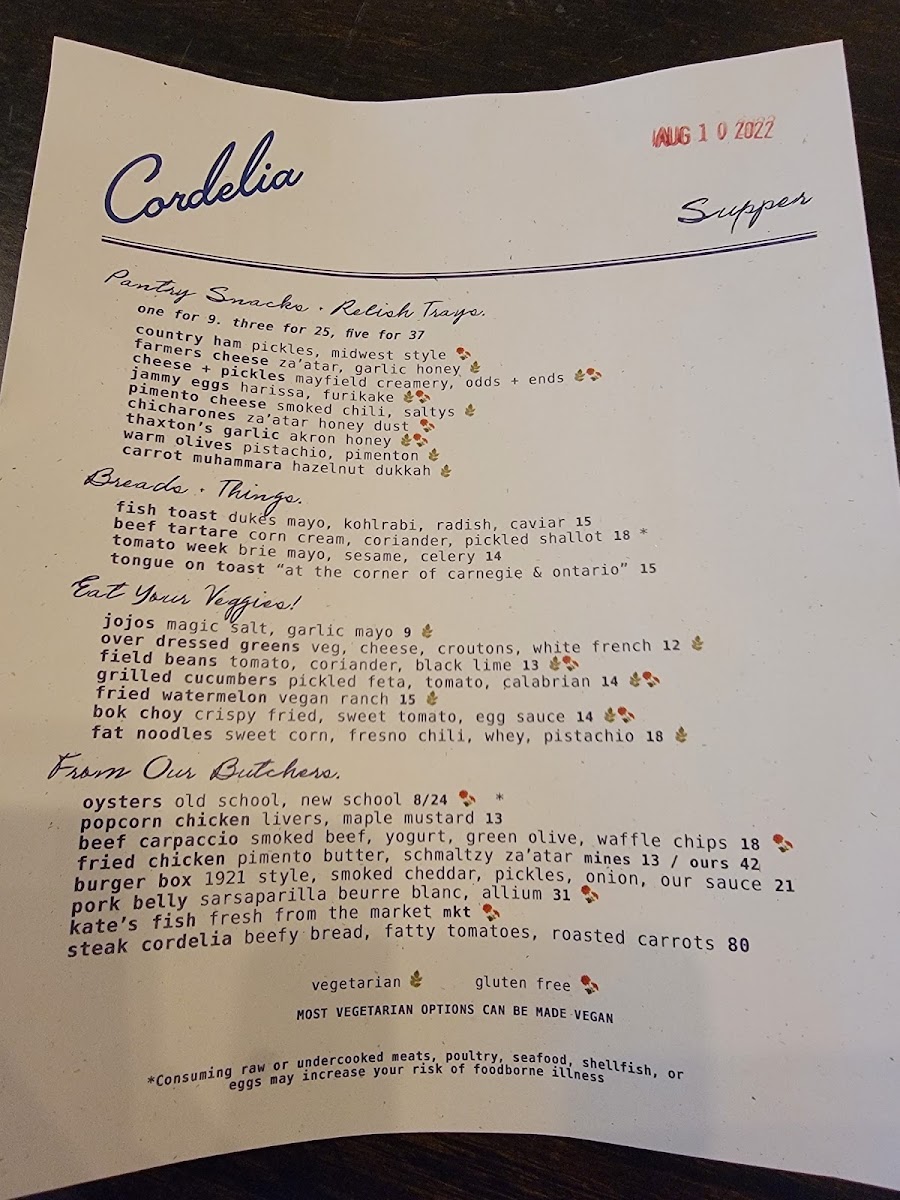 AUG 10 2022
Cordelia
Supper
Pantry Snacks · Relish Trays.
one for 9. three for 25, five for 37
country ham pickles, midwest style
farmers cheese za'atar, garlic honey
cheese + pickles mayfield creamery, odds + ends
jammy eggs harissa, furikake
pimento cheese smoked chili, saltys
chicharones za'atar honey dust
thaxton's garlic akron honey
warm olives pistachio, pimenton
carrot muhammara hazelnut dukkah
Breads · Things.
fish toast dukes mayo, kohlrabi, radish, caviar 15
beef tartare corn cream, coriander, pickled shallot 18 *
tomato week brie mayo, sesame, celery 14
tongue on toast “at the corner of carnegie & ontario” 15
Eat Your Veggies!
jojos magic salt, garlic mayo 9
over dressed greens veg, cheese, croutons, white french 12
field beans tomato, coriander, black lime 13
grilled cucumbers pickled feta, tomato, calabrian 14
fried watermelon vegan ranch 15
bok choy crispy fried, sweet tomato, egg sauce 14
fat noodles sweet corn, fresno chili, whey, pistachio 18
From Our Butchers.
oysters old school, new school 8/24 *
popcorn chicken livers, maple mustard 13
beef carpaccio smoked beef, yogurt, green olive, waffle chips 18
fried chicken pimento butter, schmaltzy za'atar mines 13 / ours 42
burger box 1921 style, smoked cheddar, pickles, onion, our sauce 21
pork belly sarsaparilla beurre blanc, allium 31
kate's fish fresh from the market mkt
steak cordelia beefy bread, fatty tomatoes, roasted carrots 80
vegetarian gluten free
MOST VEGETARIAN OPTIONS CAN BE MADE VEGAN
*Consuming raw or undercooked meats, poultry, seafood, shellfish, or
eggs may increase your risk of foodborne illness